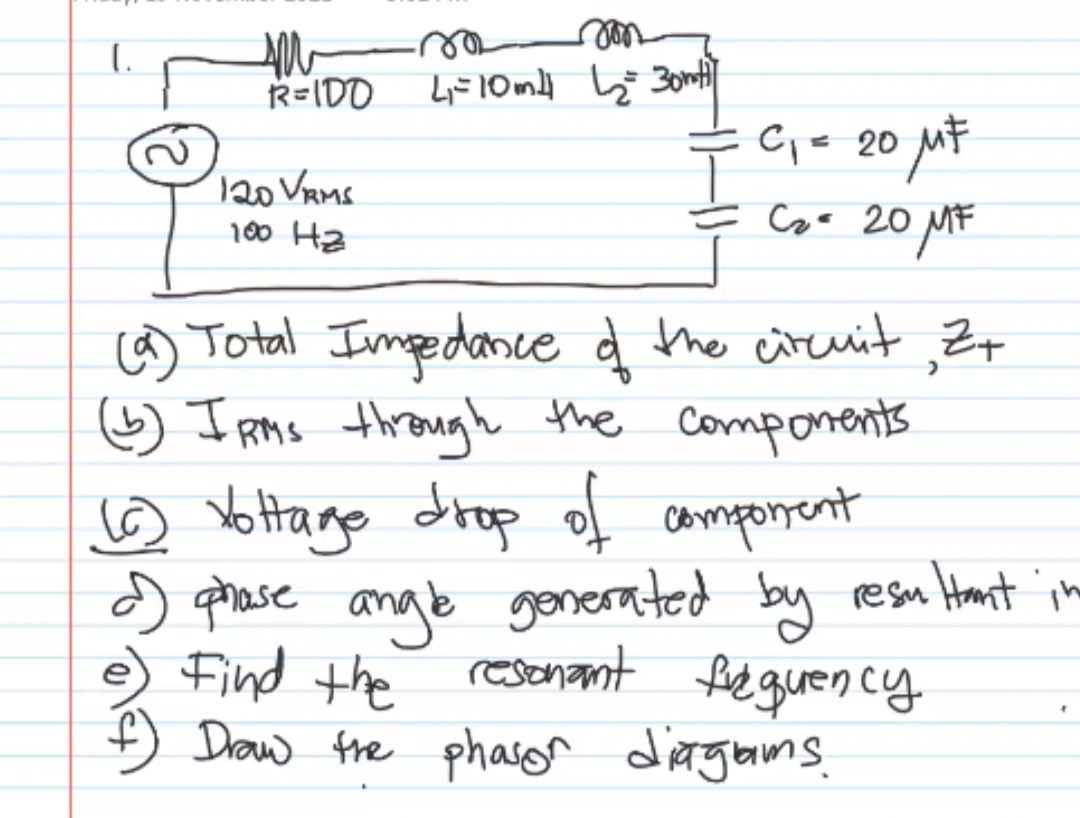 1.
R=100 L1=10mH L2=30mH
C1= 20 μF
120 VRMS
C2= 20 μF
100 Hz
(a) Total Impedance of the circuit, Z+
(b) IRMS through the components
(c) Voltage drop of component
d) phase angle generated by resultant
e) Find the resonant frequency
f) Draw the phasor diagrams.